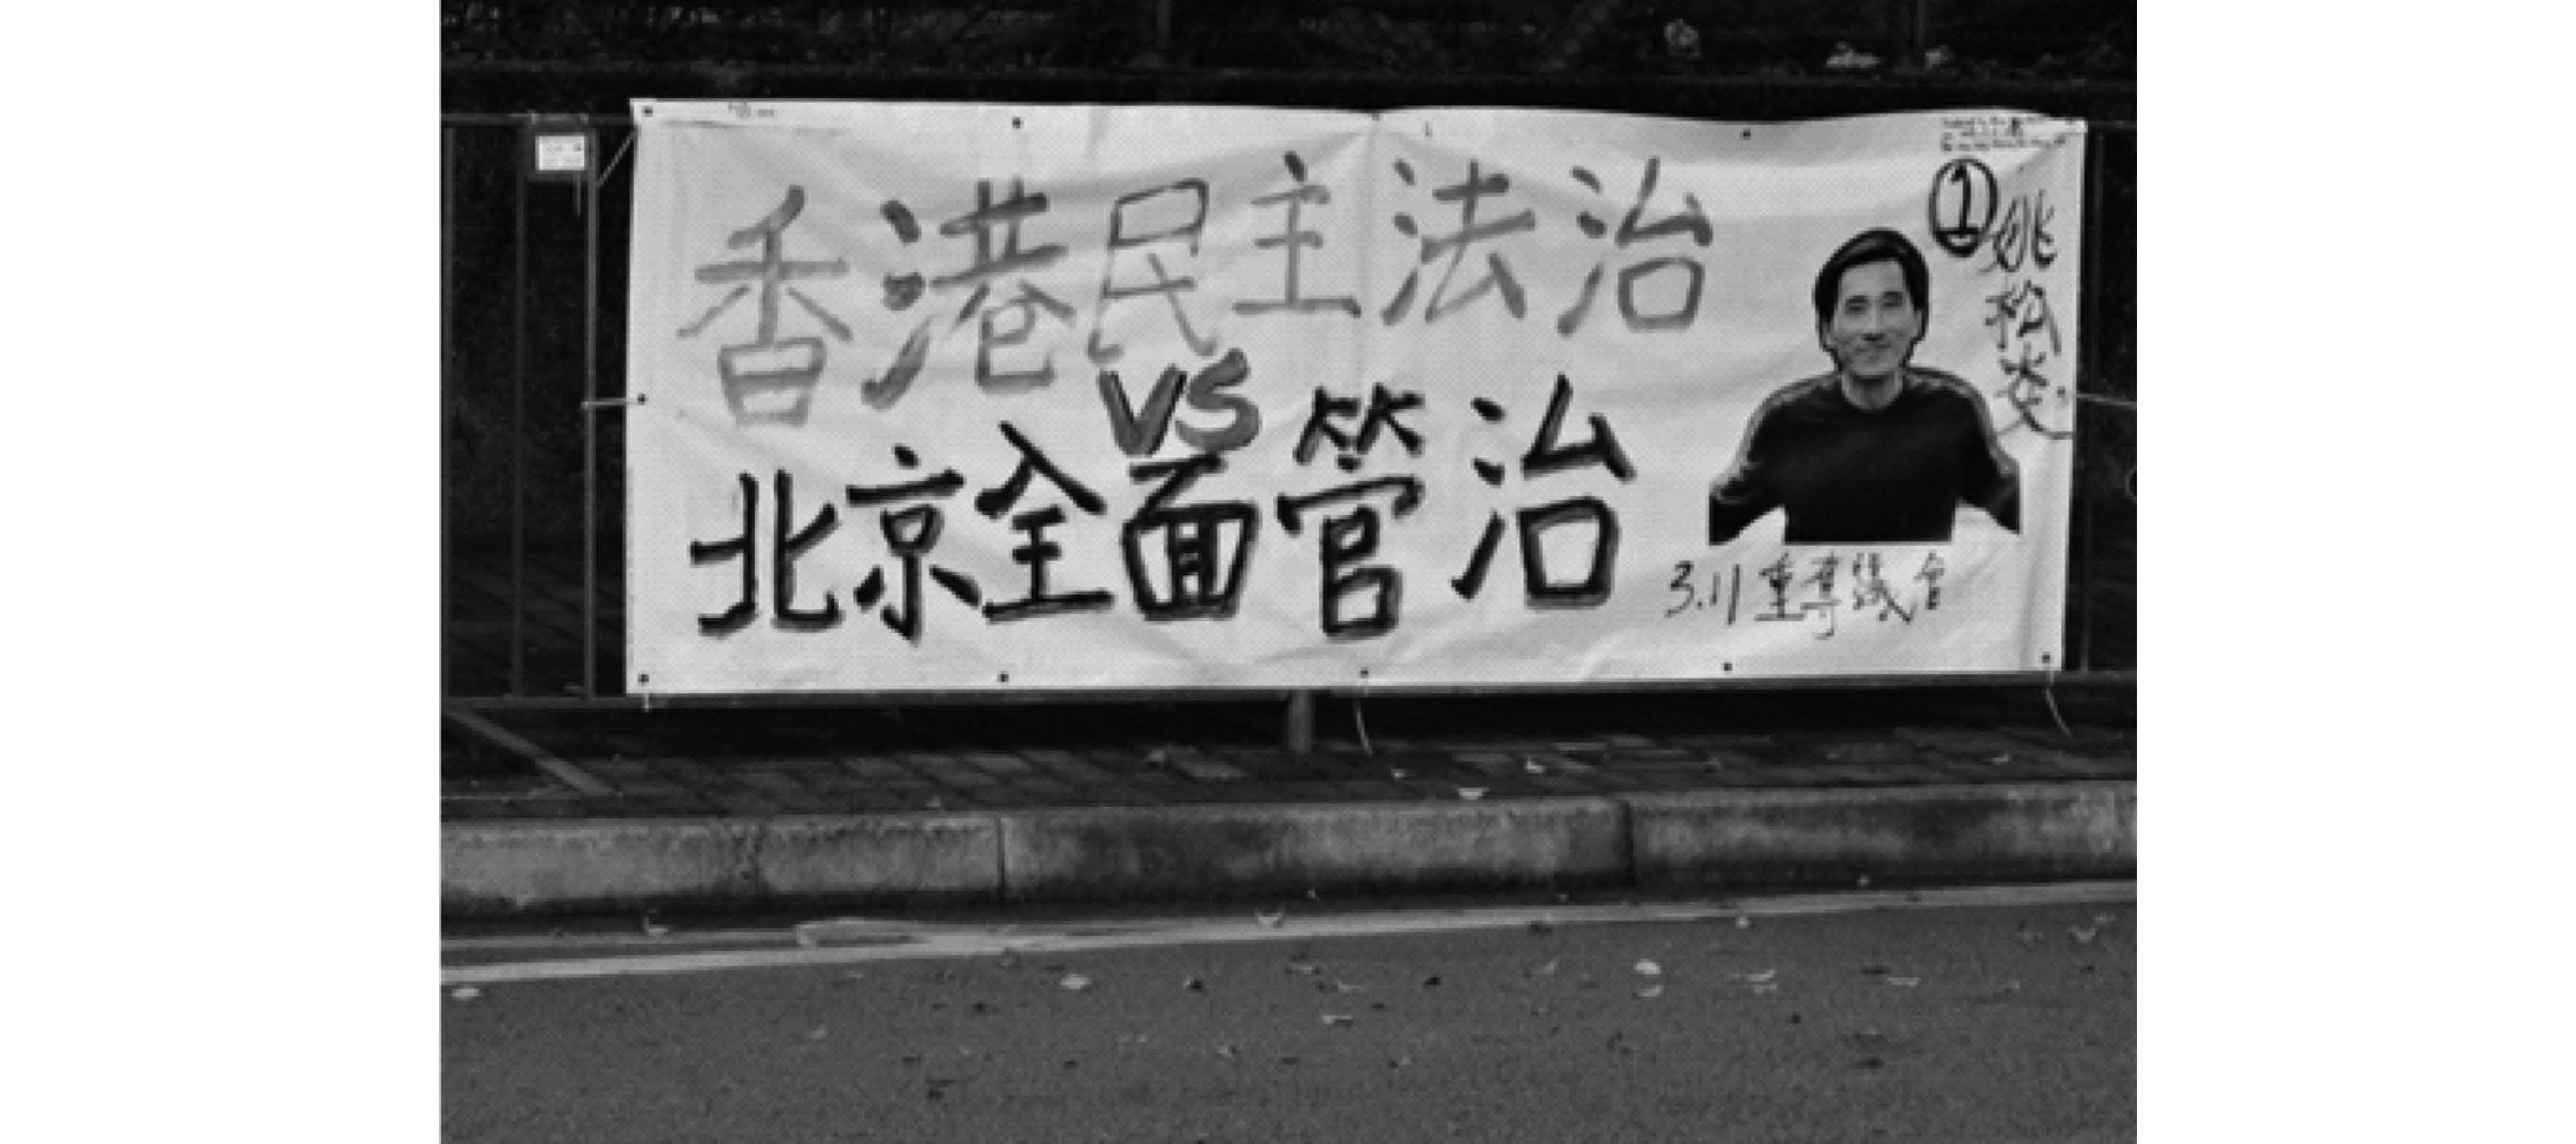 香港民主法治
VS
北京全面管治
①姚松炎
3.11重奪議會